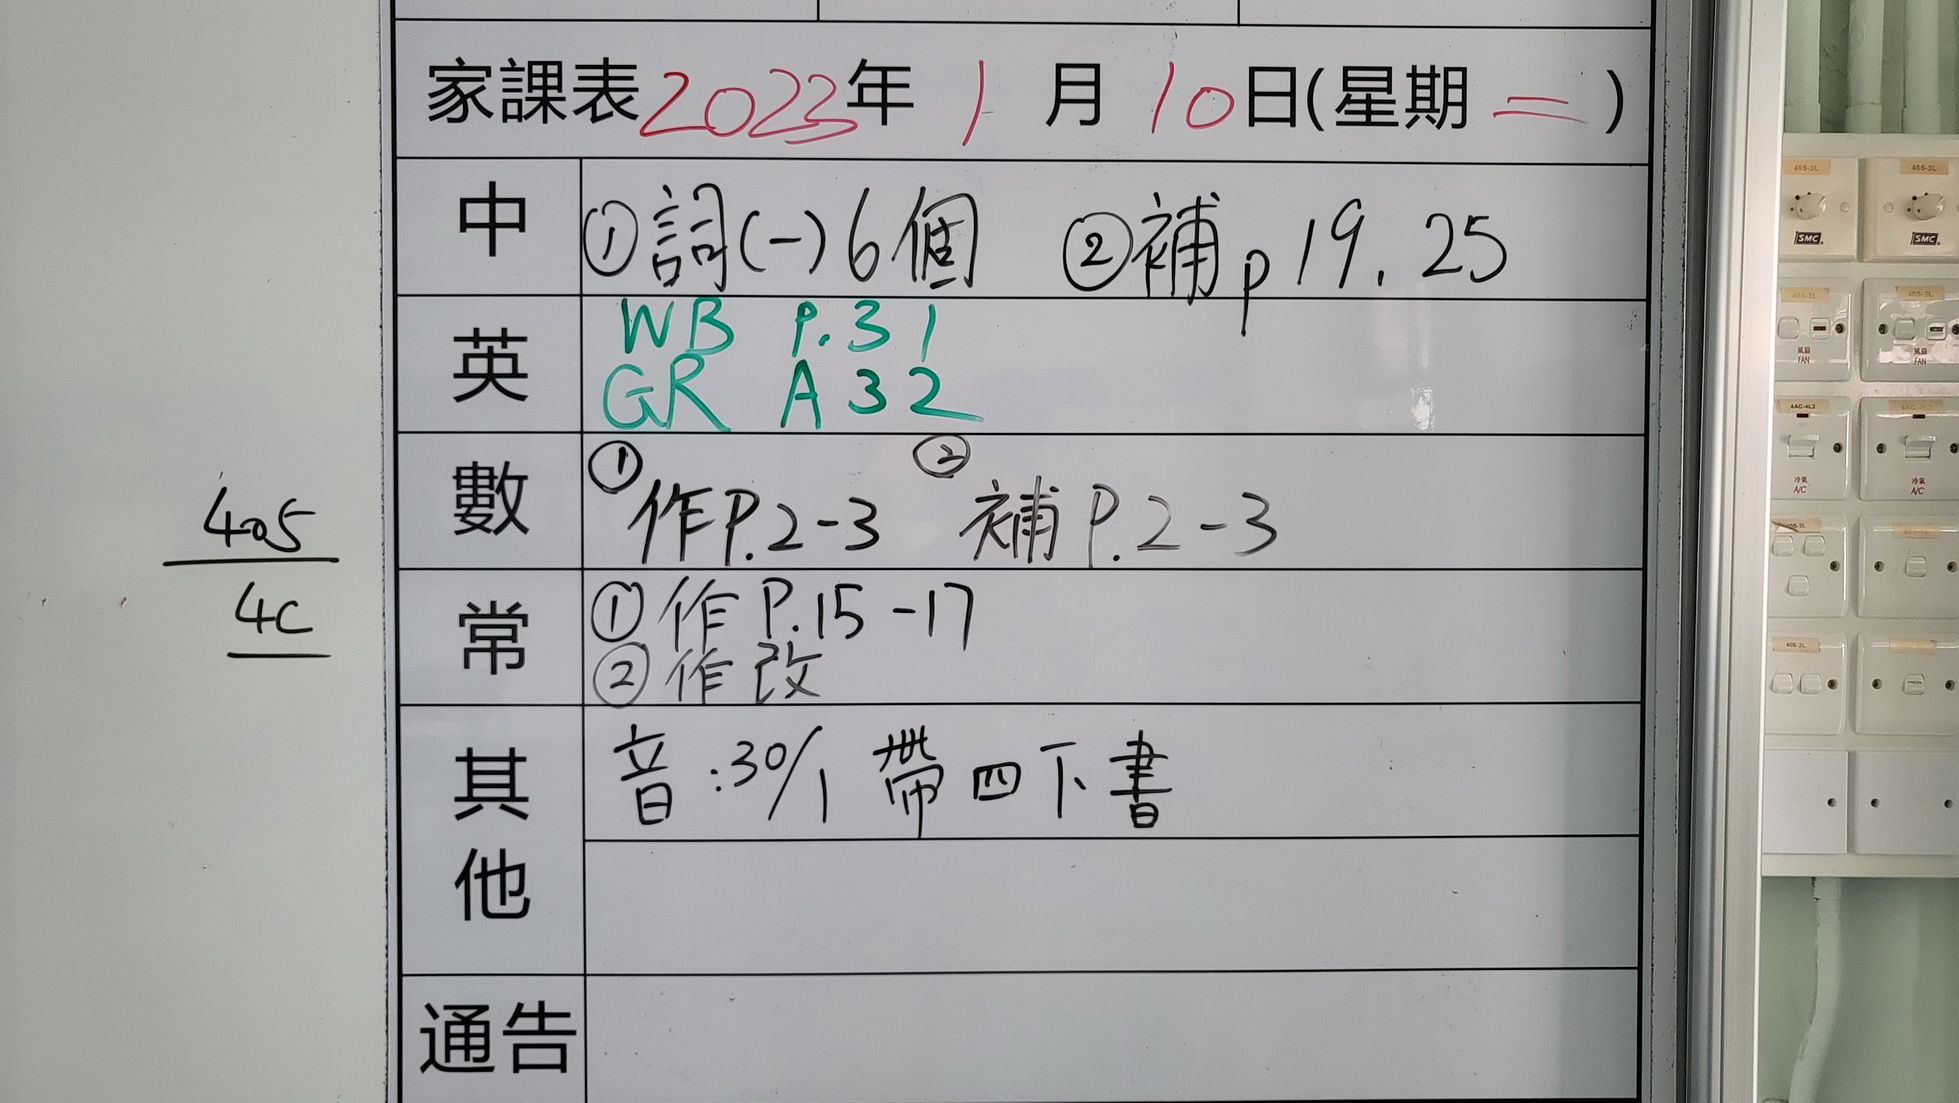 家課表2023年 1 月 10日(星期二)
中 ①詞(一)6個 ②補p19.25
英 WB P.31
GR A32
數 ①作P.2-3 ②補P.2-3
常 ①作P.15-17
②作改
其他 音:30/1 帶四下書
通告
405
4C
405-3L 405-3L
SMC SMC
405-3L 405-3L
風扇 風扇
FAN FAN
4AC-4L2
冷氣 冷氣
A/C A/C
405-3L